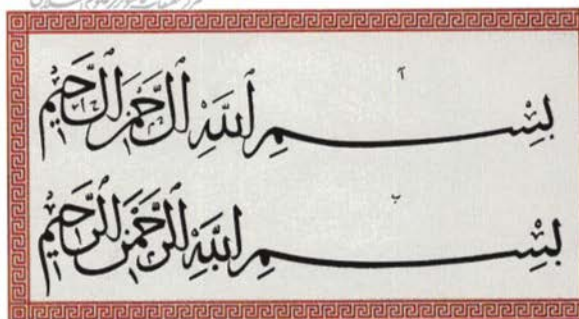 آ
بِسْمِ اللَّهِ الرَّحْمَنِ الرَّحِيمِ
ب
بِسْمِ اللَّهِ الرَّحْمَنِ الرَّحِيمِ